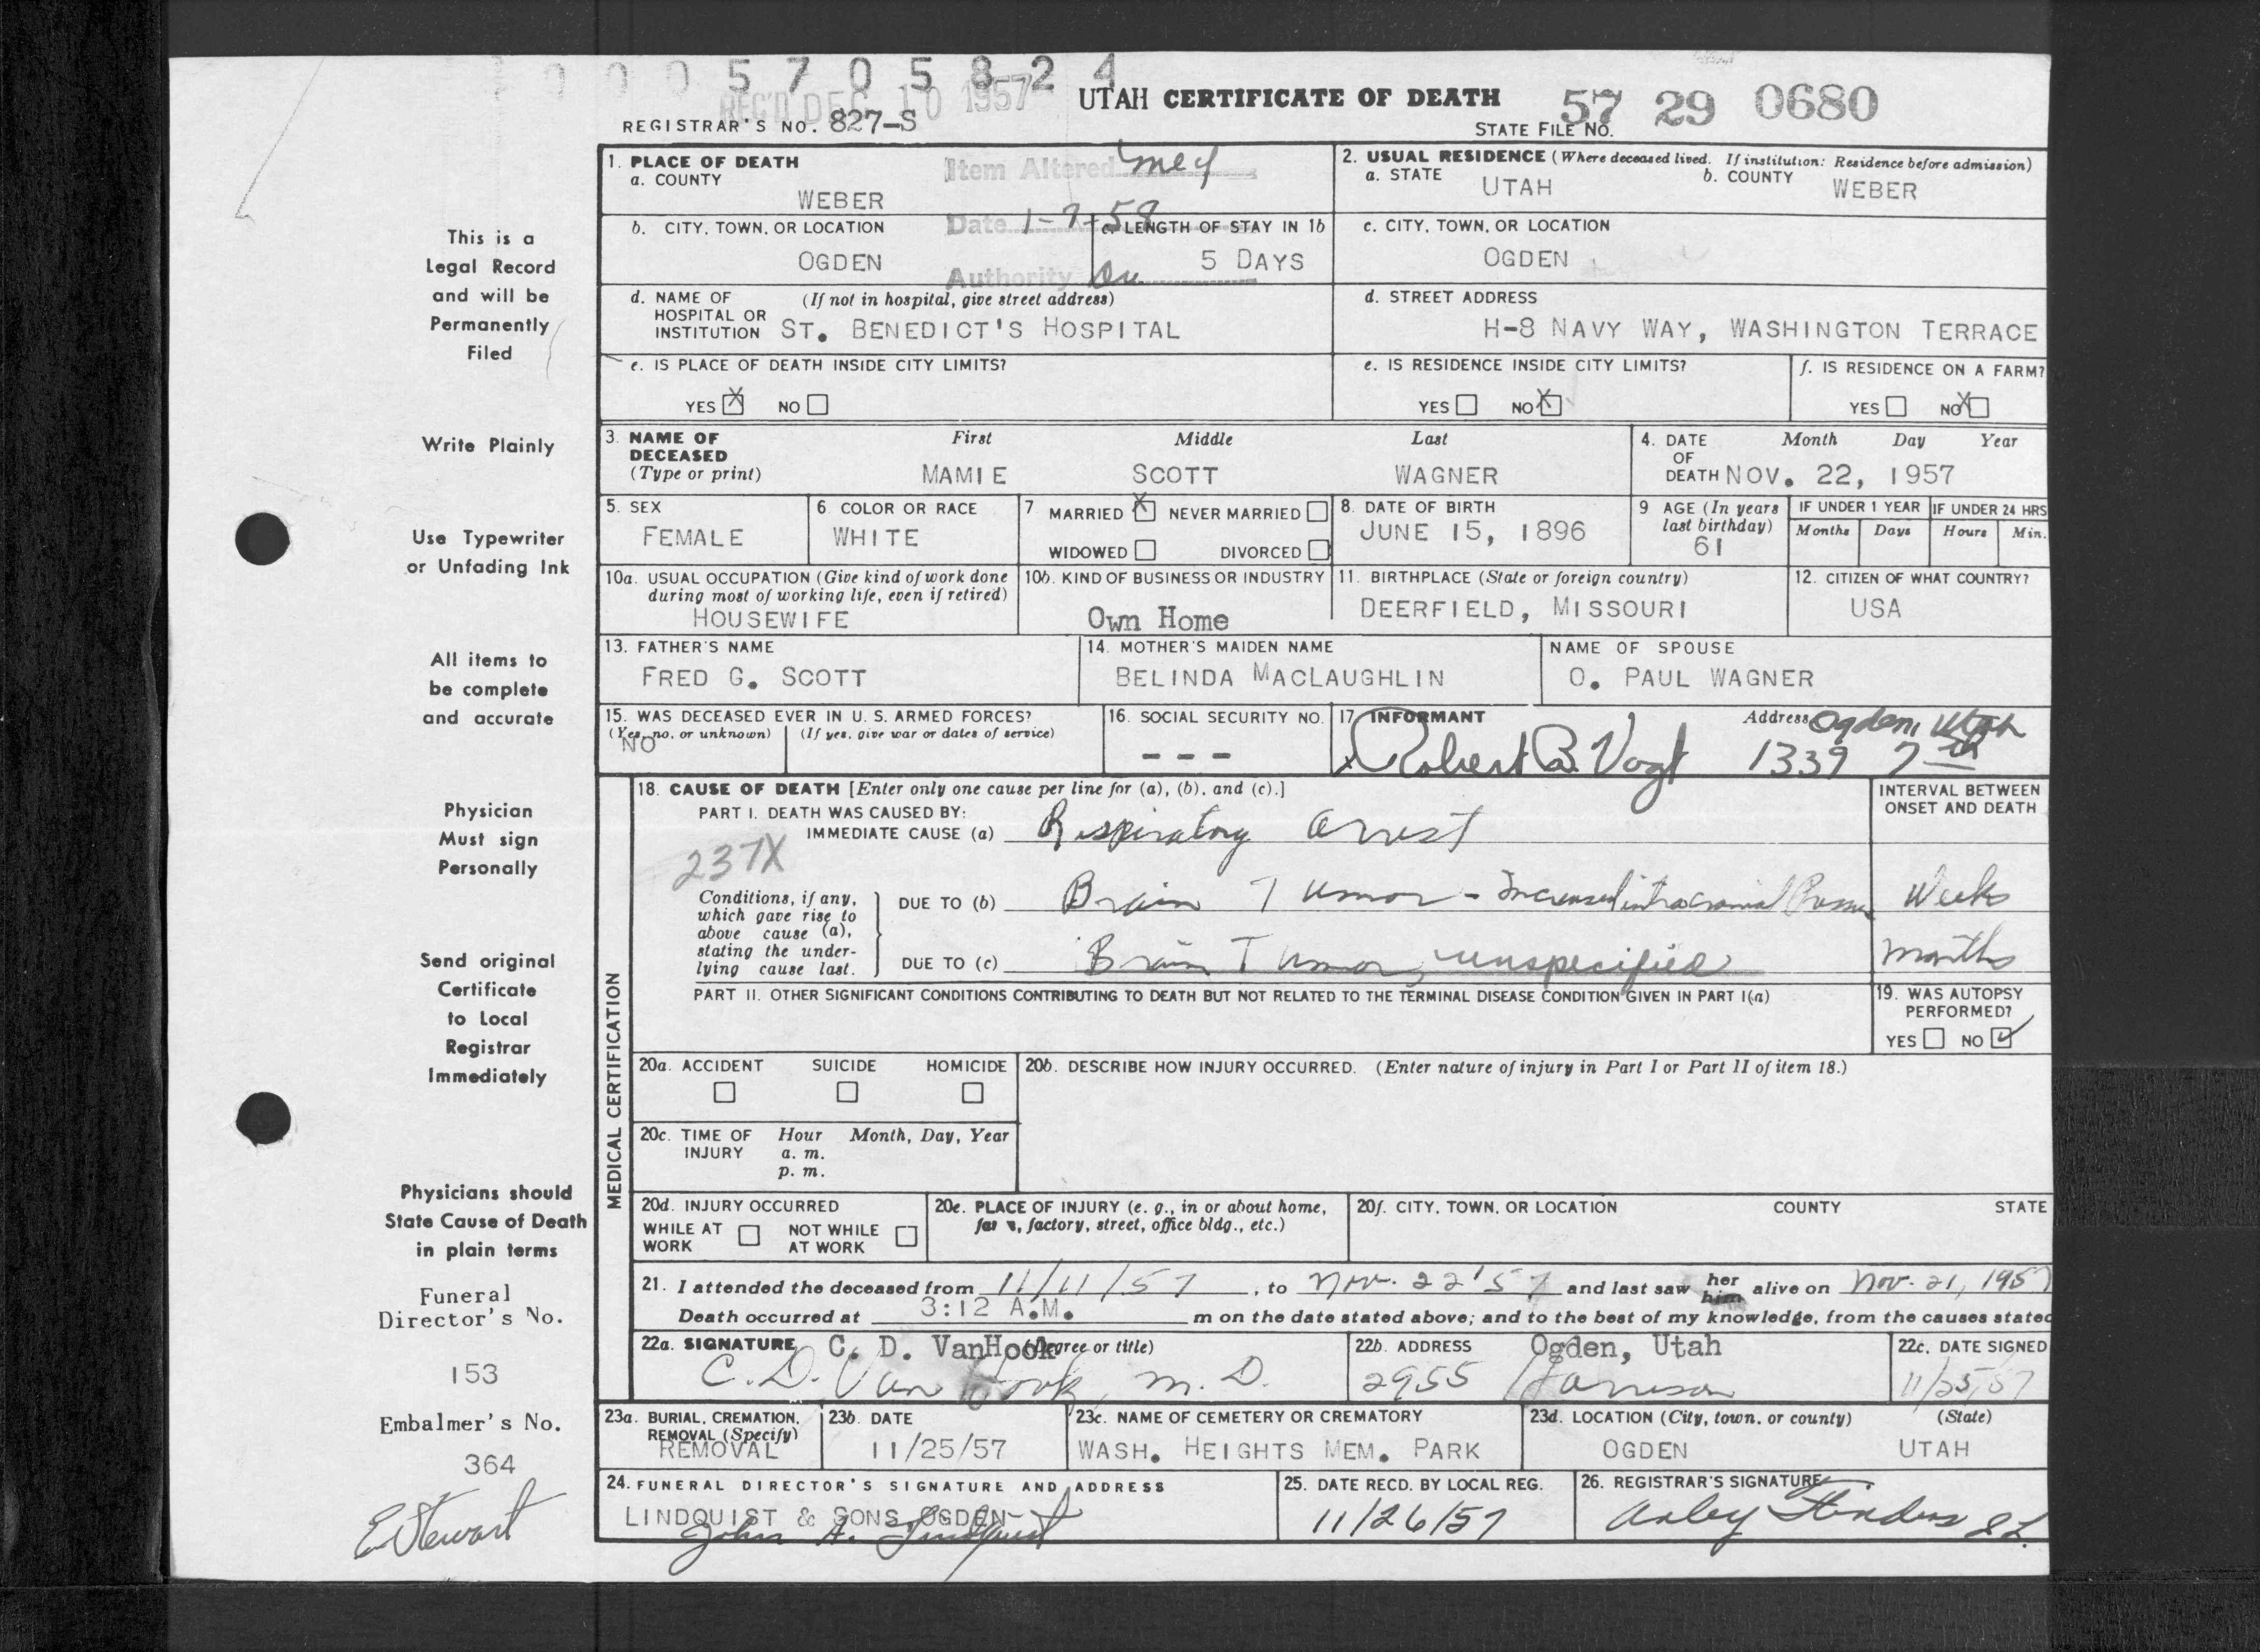 0 0 0 5 7 0 5 8 2 4
REC'D DEC 10 1957
UTAH CERTIFICATE OF DEATH
57 29 0680
REGISTRAR'S NO. 827-S
STATE FILE NO.
1. PLACE OF DEATH
a. COUNTY
WEBER
Item Altered
Date 1-7-58
Authority
2. USUAL RESIDENCE (Where deceased lived. If institution: Residence before admission)
a. STATE UTAH b. COUNTY WEBER
b. CITY, TOWN, OR LOCATION
OGDEN
c. LENGTH OF STAY IN 1b
5 DAYS
c. CITY, TOWN, OR LOCATION
OGDEN
d. NAME OF HOSPITAL OR INSTITUTION (If not in hospital, give street address)
ST. BENEDICT'S HOSPITAL
d. STREET ADDRESS
H-8 NAVY WAY, WASHINGTON TERRACE
e. IS PLACE OF DEATH INSIDE CITY LIMITS?
YES X NO
e. IS RESIDENCE INSIDE CITY LIMITS?
YES NO X
f. IS RESIDENCE ON A FARM?
YES NO X
3. NAME OF DECEASED (Type or print)
First Middle Last
MAMIE SCOTT WAGNER
4. DATE OF DEATH Month Day Year
NOV. 22, 1957
5. SEX
FEMALE
6. COLOR OR RACE
WHITE
7 MARRIED X NEVER MARRIED
WIDOWED DIVORCED
8. DATE OF BIRTH
JUNE 15, 1896
9 AGE (In years last birthday)
61
IF UNDER 1 YEAR
Months Days
IF UNDER 24 HRS
Hours Min.
10a. USUAL OCCUPATION (Give kind of work done during most of working life, even if retired)
HOUSEWIFE
10b. KIND OF BUSINESS OR INDUSTRY
Own Home
11. BIRTHPLACE (State or foreign country)
DEERFIELD, MISSOURI
12. CITIZEN OF WHAT COUNTRY?
USA
13. FATHER'S NAME
FRED G. SCOTT
14. MOTHER'S MAIDEN NAME
BELINDA MACLAUGHLIN
NAME OF SPOUSE
O. PAUL WAGNER
15. WAS DECEASED EVER IN U. S. ARMED FORCES?
(Yes, no, or unknown) (If yes, give war or dates of service)
NO
16. SOCIAL SECURITY NO.
- - -
17 INFORMANT
Robert B. Vogt
Address Ogden, Utah
1339 7th
MEDICAL CERTIFICATION
18. CAUSE OF DEATH [Enter only one cause per line for (a), (b), and (c).]
INTERVAL BETWEEN ONSET AND DEATH
PART I. DEATH WAS CAUSED BY:
IMMEDIATE CAUSE (a) Respiratory arrest
237X
Conditions, if any, which gave rise to above cause (a), stating the underlying cause last.
DUE TO (b) Brain Tumor - Increased intracranial Pressure Weeks
DUE TO (c) Brain Tumor, unspecified months
PART II. OTHER SIGNIFICANT CONDITIONS CONTRIBUTING TO DEATH BUT NOT RELATED TO THE TERMINAL DISEASE CONDITION GIVEN IN PART I(a)
19. WAS AUTOPSY PERFORMED?
YES NO ✓
20a. ACCIDENT SUICIDE HOMICIDE
20b. DESCRIBE HOW INJURY OCCURRED. (Enter nature of injury in Part I or Part II of item 18.)
20c. TIME OF INJURY Hour Month, Day, Year
a. m.
p. m.
20d. INJURY OCCURRED
WHILE AT WORK NOT WHILE AT WORK
20e. PLACE OF INJURY (e. g., in or about home, farm, factory, street, office bldg., etc.)
20f. CITY, TOWN, OR LOCATION COUNTY STATE
21. I attended the deceased from 11/11/57, to Nov. 22 '57 and last saw her him alive on Nov. 21, 1957
Death occurred at 3:12 A.M. m on the date stated above; and to the best of my knowledge, from the causes stated
22a. SIGNATURE C. D. VanHook (Degree or title)
C. D. Van Hook, M. D.
22b. ADDRESS Ogden, Utah
2955 Harrison
22c. DATE SIGNED
11/25/57
23a. BURIAL, CREMATION, REMOVAL (Specify)
REMOVAL
23b. DATE
11/25/57
23c. NAME OF CEMETERY OR CREMATORY
WASH. HEIGHTS MEM. PARK
23d. LOCATION (City, town, or county) (State)
OGDEN UTAH
24. FUNERAL DIRECTOR'S SIGNATURE AND ADDRESS
LINDQUIST & SONS, OGDEN
John A. Lindquist
25. DATE RECD. BY LOCAL REG.
11/26/57
26. REGISTRAR'S SIGNATURE
This is a
Legal Record
and will be
Permanently
Filed
Write Plainly
Use Typewriter
or Unfading Ink
All items to
be complete
and accurate
Physician
Must sign
Personally
Send original
Certificate
to Local
Registrar
Immediately
Physicians should
State Cause of Death
in plain terms
Funeral
Director's No.
153
Embalmer's No.
364
E Stewart